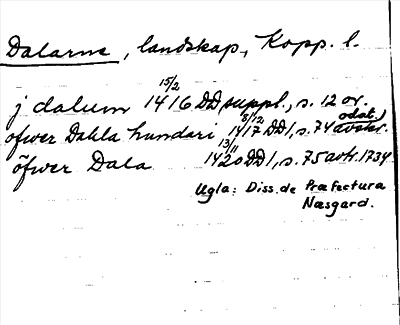 Dalarne, landskap, Kopp. l.
15/2
j dalum 1416 DD suppl., s. 12 or.
8/12 odat.)
ofwer Dahla hundari 1417 DD 1, s. 74 avskr.
13/11
öfwer Dala 1420 DD 1, s. 75 avkr. 1734
Ugla: Diss. de Præfectura
Næsgard.